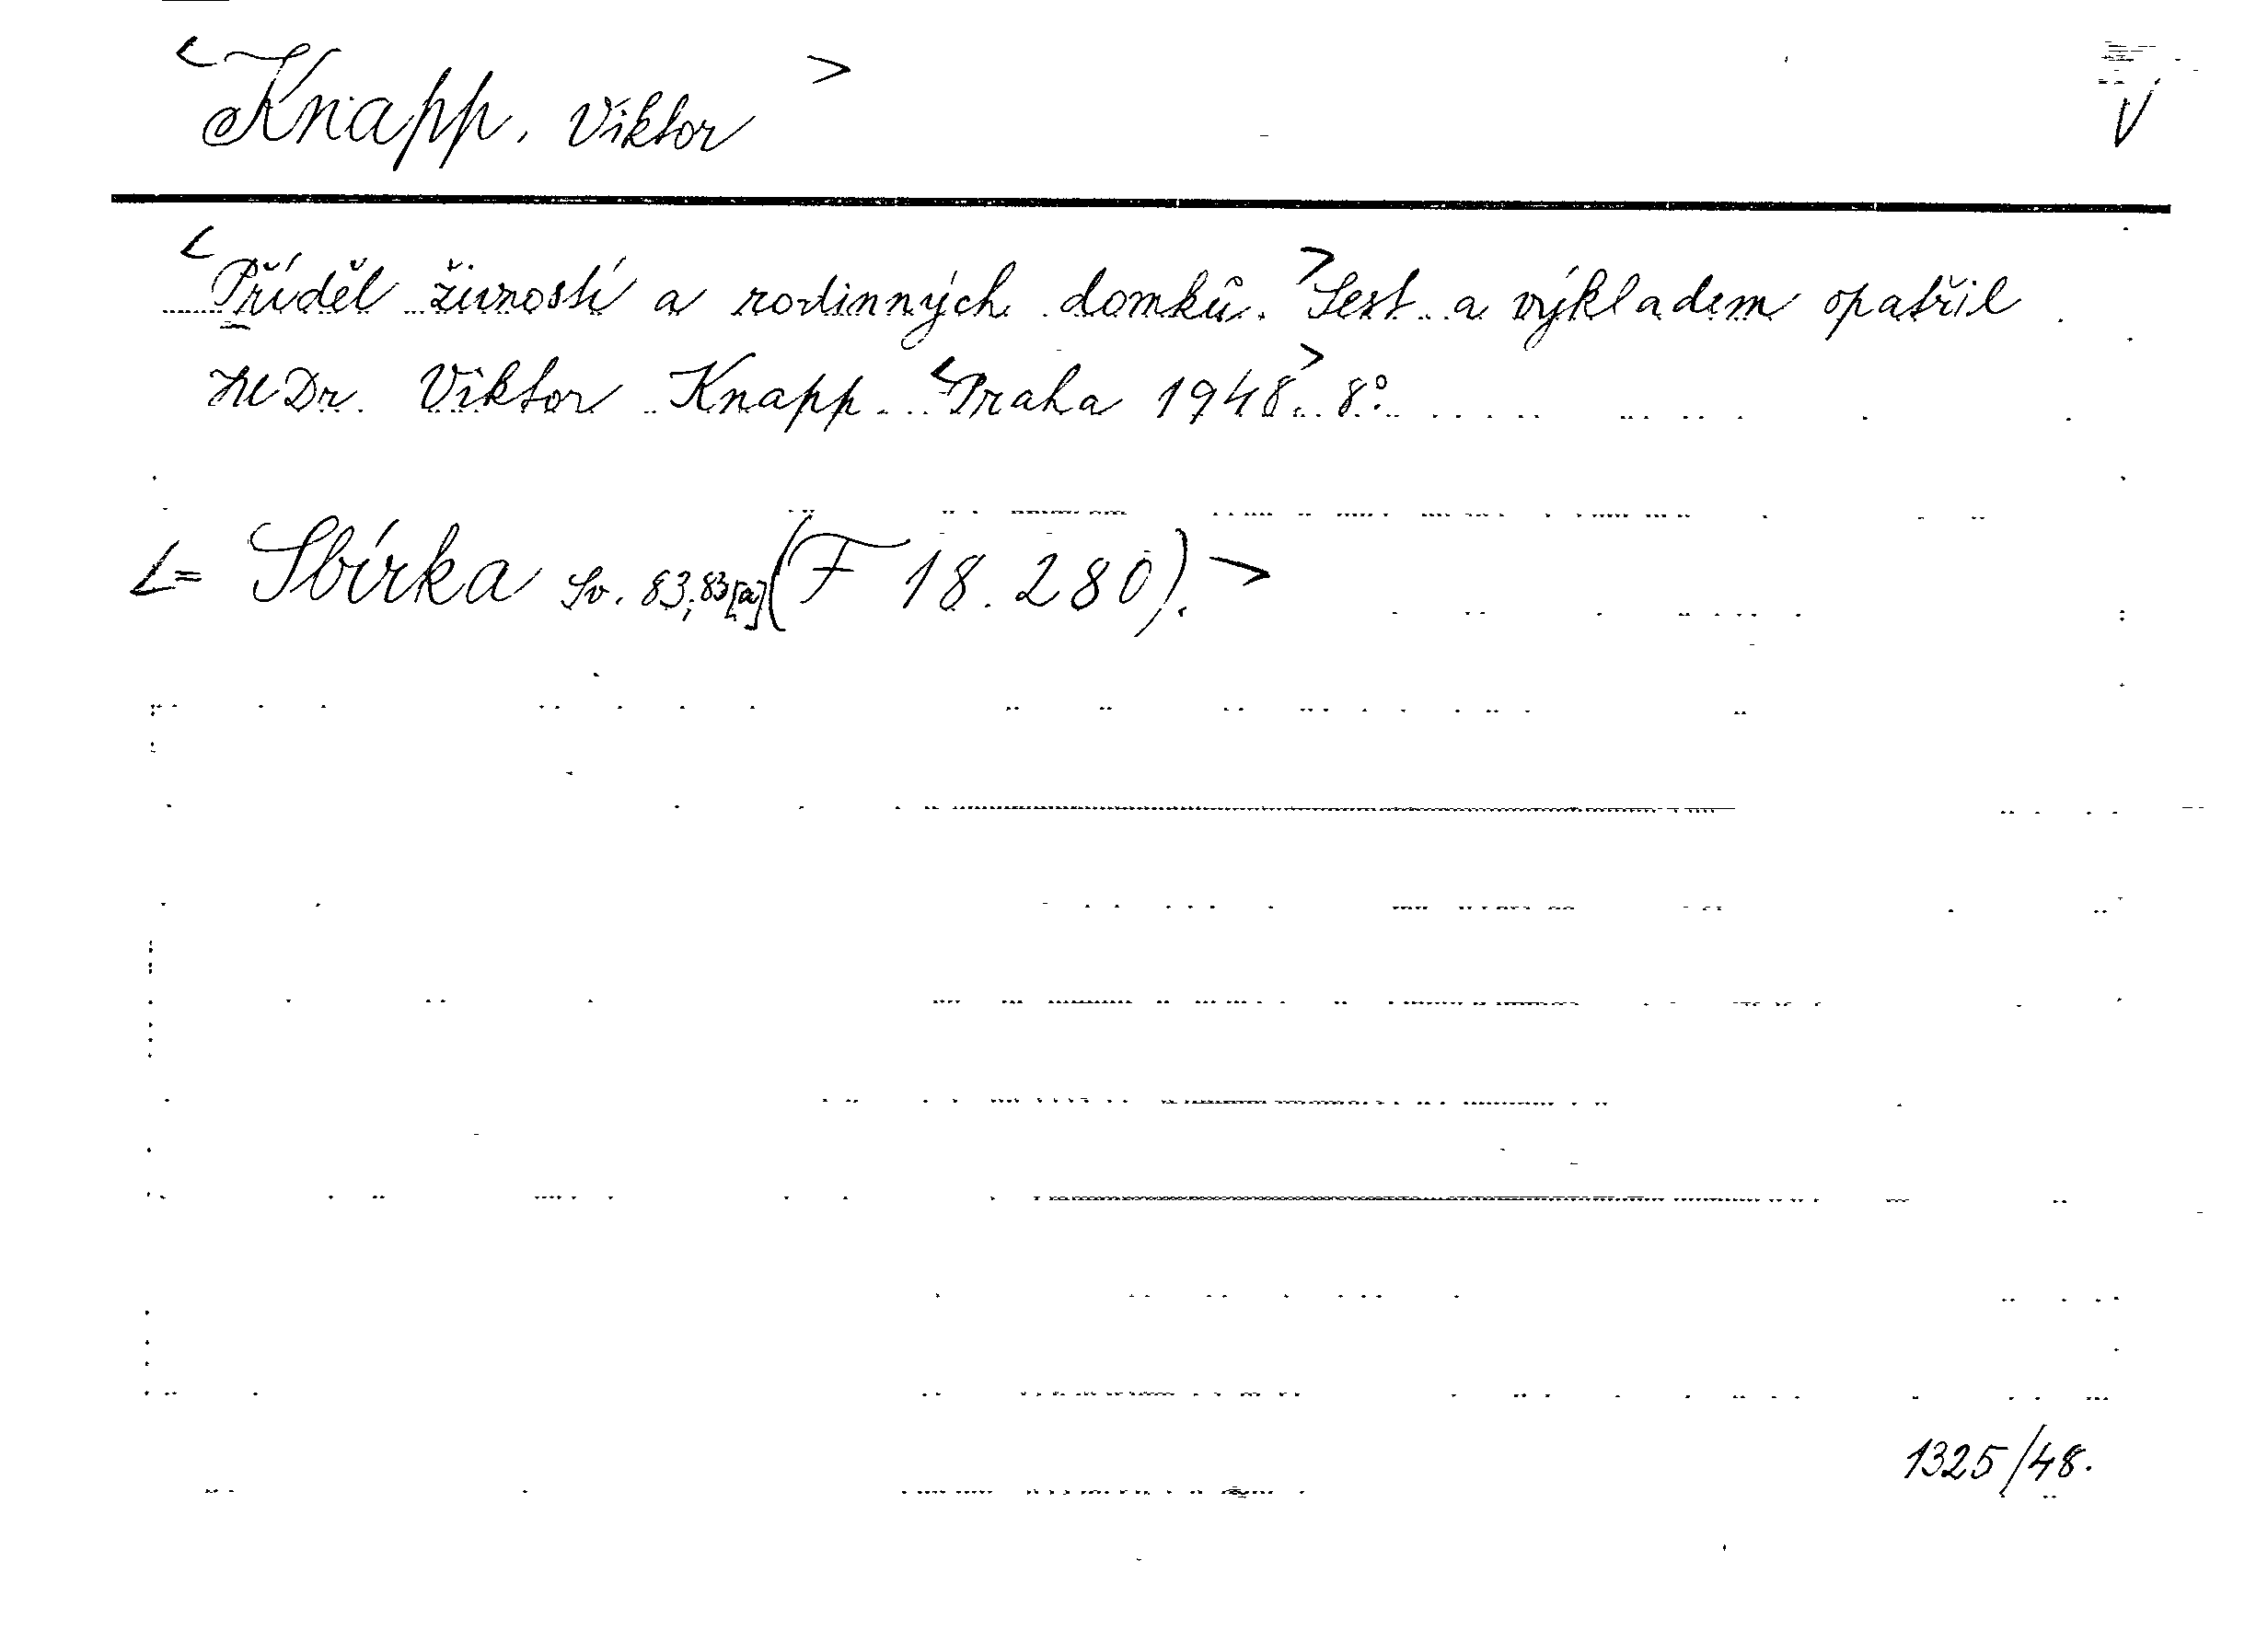 <Knapp, Viktor> V
<Příděl živností a rodinných domků.> Sest. a výkladem opatřil
JUDr. Viktor Knapp. <Praha 1948>. 8°.
<= Sbírka Sv. 83; 83[a] (F 18.280).>
1325/48.